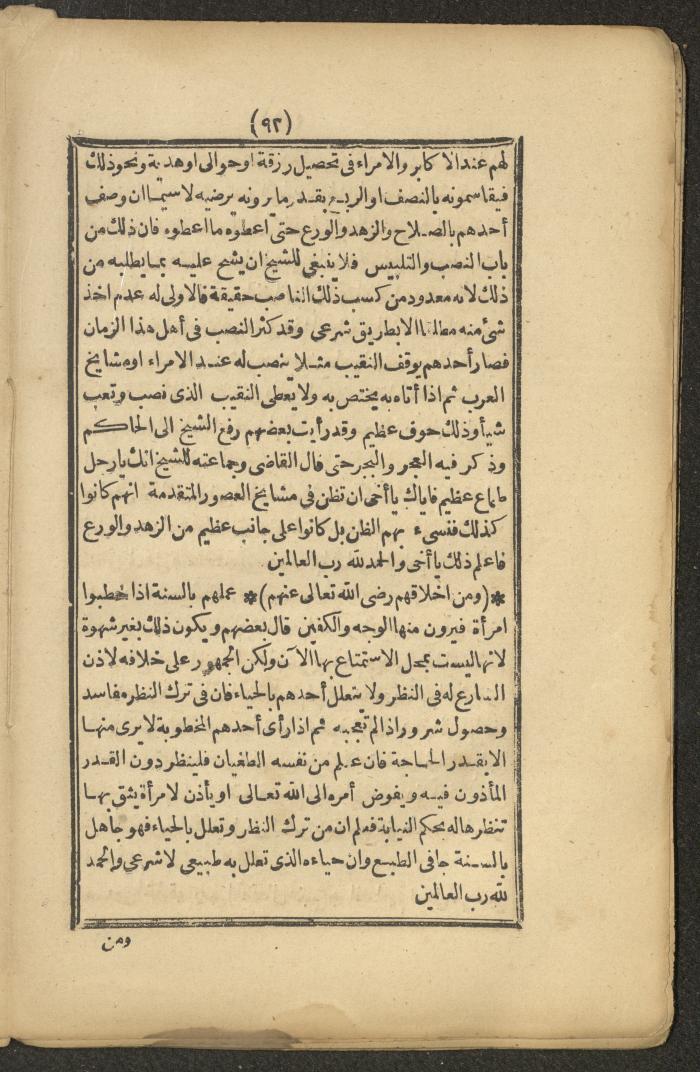 (٩٢)
لهم عند الاكابر والامراء فى تحصيل رزقة اوحوالى اوهدية ونحوذلك
فيقاسمونه بالنصف اوالربع بقدر ما يرونه يرضيه لاسيما ان وصف
أحدهم بالصلاح والزهد والورع حتى اعطوه ما اعطوه فان ذلك من
باب النصب والتلبيس فلا ينبغى للشيخ ان يشح عليه بما يطلبه من
ذلك لانه معدود من كسب ذلك الناصب حقيقة فالاولى له عدم اخذ
شئ منه مطلقا الا بطريق شرعى وقد كثر النصب فى أهل هذا الزمان
فصار أحدهم يوقف النقيب مثلا ينصب له عند الامراء اومشايخ
العرب ثم اذا أتاه به يختص به ولا يعطى النقيب الذى نصب وتعب
شيأ وذلك حوف عظيم وقد رأيت بعضهم رفع الشيخ الى الحاكم
وذكر فيه العجر والبجر حتى قال القاضى وجماعته للشيخ انك يارجل
طماع عظيم فاياك ياأخى ان تظن فى مشايخ العصور المتقدمة انهم كانوا
كذلك فتسىء بهم الظن بل كانوا على جانب عظيم من الزهد والورع
فاعلم ذلك ياأخى والحمدلله رب العالمين
*(ومن اخلاقهم رضى الله تعالى عنهم)* عملهم بالسنة اذا خطبوا
امرأة فيرون منها الوجه والكفين قال بعضهم ويكون ذلك بغير شهوة
لانها ليست بمحل الاستمتاع بها الآن ولكن الجمهور على خلافه لاذن
الشارع له فى النظر ولا يتعلل أحدهم بالحياء فان فى ترك النظر مفاسد
وحصول شرور اذا لم تعجبه ثم اذا رأى أحدهم المخطوبة لا يرى منها
الا بقدر الحاجة فان علم من نفسه الطغيان فلينظر دون القدر
المأذون فيه ويفوض أمره الى الله تعالى او يأذن لامرأة يثق بها
تنظرها له بحكم النيابة فعلم ان من ترك النظر وتعلل بالحياء فهو جاهل
بالسنة جافى الطبع وان حياءه الذى تعلل به طبيعى لا شرعى والحمد
لله رب العالمين
ومن